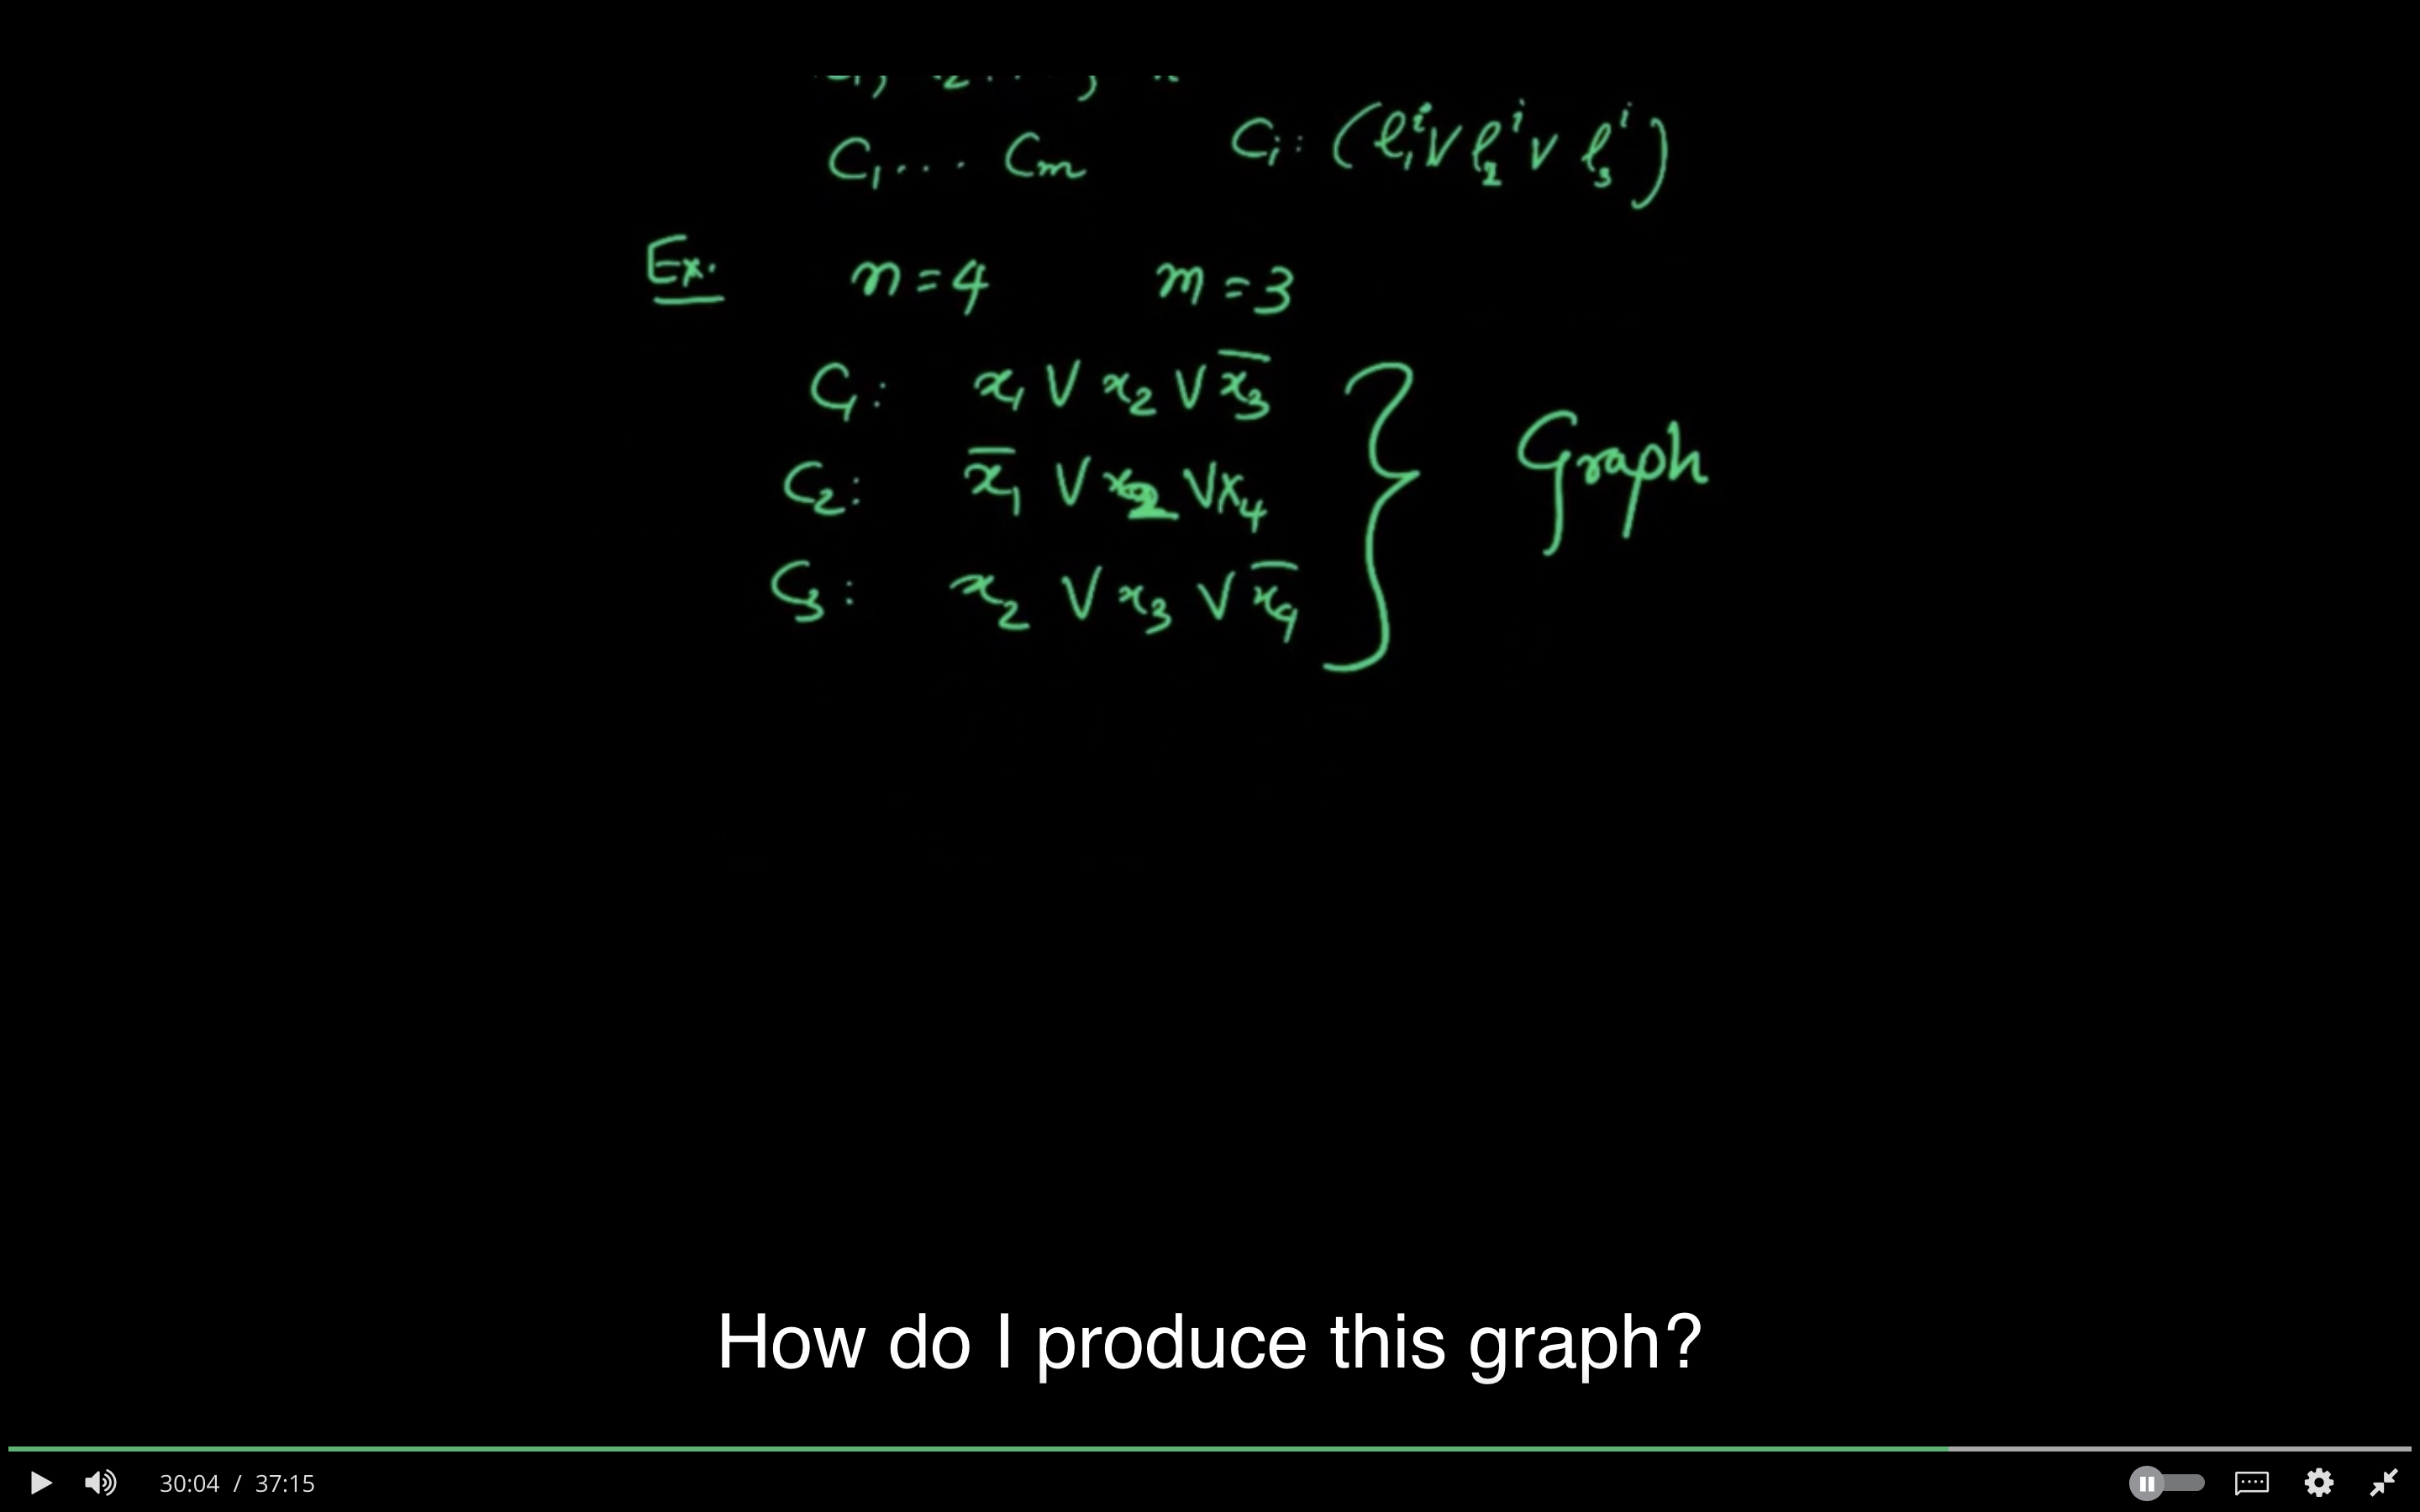 C₁ . . . Cₘ   Cᵢ : (ℓ₁ⁱ ∨ ℓ₂ⁱ ∨ ℓ₃ⁱ)
Ex.   n = 4   m = 3
C₁ :   x₁ ∨ x₂ ∨ x̄₃
C₂ :   x̄₁ ∨ x₂ ∨ x₄   Graph
C₃ :   x₂ ∨ x₃ ∨ x̄₄
How do I produce this graph?
30:04 / 37:15